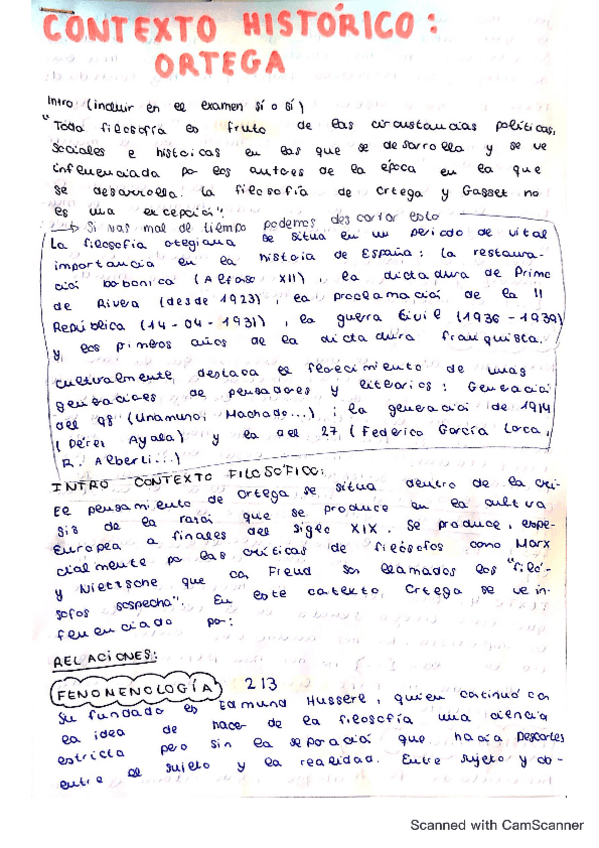 CONTEXTO HISTÓRICO:
ORTEGA
Intro (incluir en el examen sí o sí)
"Toda filosofía es fruto de las circustancias políticas,
sociales e histoicas en las que se desarrolla y se ve
influenciada por los autores de la época en la que
se desarrolla. La filosofía de Ortega y Gasset no
es una excepción".
→ Si vas mal de tiempo podemos descartar esto
La filosofía otegiana se situa en un periodo de vital
importancia en la historia de España: la restaura-
ción borbonica (Alfoso XII), la dictadura de Primo
de Rivera (desde 1923), la proclamación de la II
República (14-04-1931), la guerra Civil (1936-1939)
y los primeros años de la dictadura franquista.
Culturalmente destaca el florecimiento de unas
generaciones de pensadores y literarios: Generación
del 98 (Unamuno, Machado...); la generación de 1914
(Pérez Ayala) y la del 27 (Federico García Lorca,
R. Alberti...)
INTRO CONTEXTO FILOSÓFICO:
El pensamiento de Ortega se situa dentro de la cri-
sis de la razón que se produce en la cultura
Europea a finales del siglo XIX. Se produce, espe-
cialmente por las críticas de filósofos como Marx
y Nietzsche que con Freud son llamados los "filó-
sofos sospecha". En este contexto, Ortega se ve in-
fluenciado por:
RELACIONES:
FENOMENOLOGÍA 213
Su fundado es Edmund Husserl, quien continuó con
la idea de hacer de la filosofía una ciencia
estricta pero sin la separación que hacía Descartes
entre el sujeto y la realidad. Entre sujeto y ob-
Scanned with CamScanner